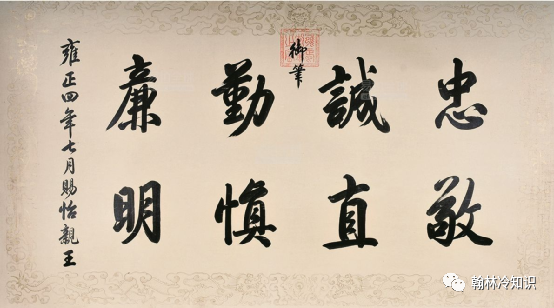 忠敬
誠直
勤慎
廉明
御筆
雍正四年七月賜怡親王
翰林冷知识